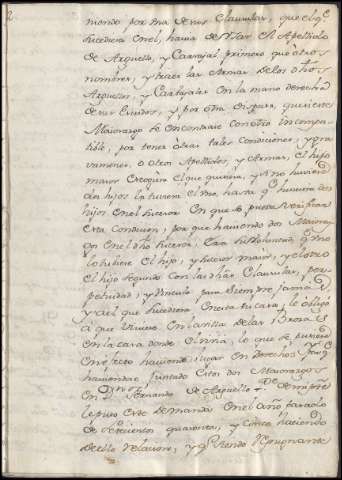 2
niendo por una de sus Clausulas, que el qe
sucediera en el, havia de Usar el Apellido
de Arguello, y Carvajal primero que otros
nombres, y traer las Armas de los dhos
Arguellos, y Carvajales en la mano derecha
de sus Escudos, y por otra dispuso, que si este
Maiorazgo se encontrare con otro incompa
tible, por tener otras tales condiciones, y gra
vamenes, o otros Apellidos, y Armas, el hijo
maior escogiera el que quisiera, y si no huviere
dos hijos los tuviera el uno, hasta qe huviera dos
hijos en el sucesor en que se pueda verificar
esta condicion, por que haviendo dos Maioraz
gos en el dho sucesor,
lo lleve el hijo, y sucesor maior, y el otro
el hijo segundo con las dhas Clausulas, per
petuidad, y Vinculo para siempre jamas
y al que sucediera en esta su casa, le obligo
a que viviere en la Villa de las Brozas
en la casa donde el vivia, lo que se pusiere
en efecto haviendo lugar en derecho, y qe
haviendose juntado estos dos Maiorazgos
en Dn Fernando de Arguello
le puso este demanda en el año pasado
de setecientos quarenta, y cinco haciendo
de ello relacion, y pidiendo repugnante